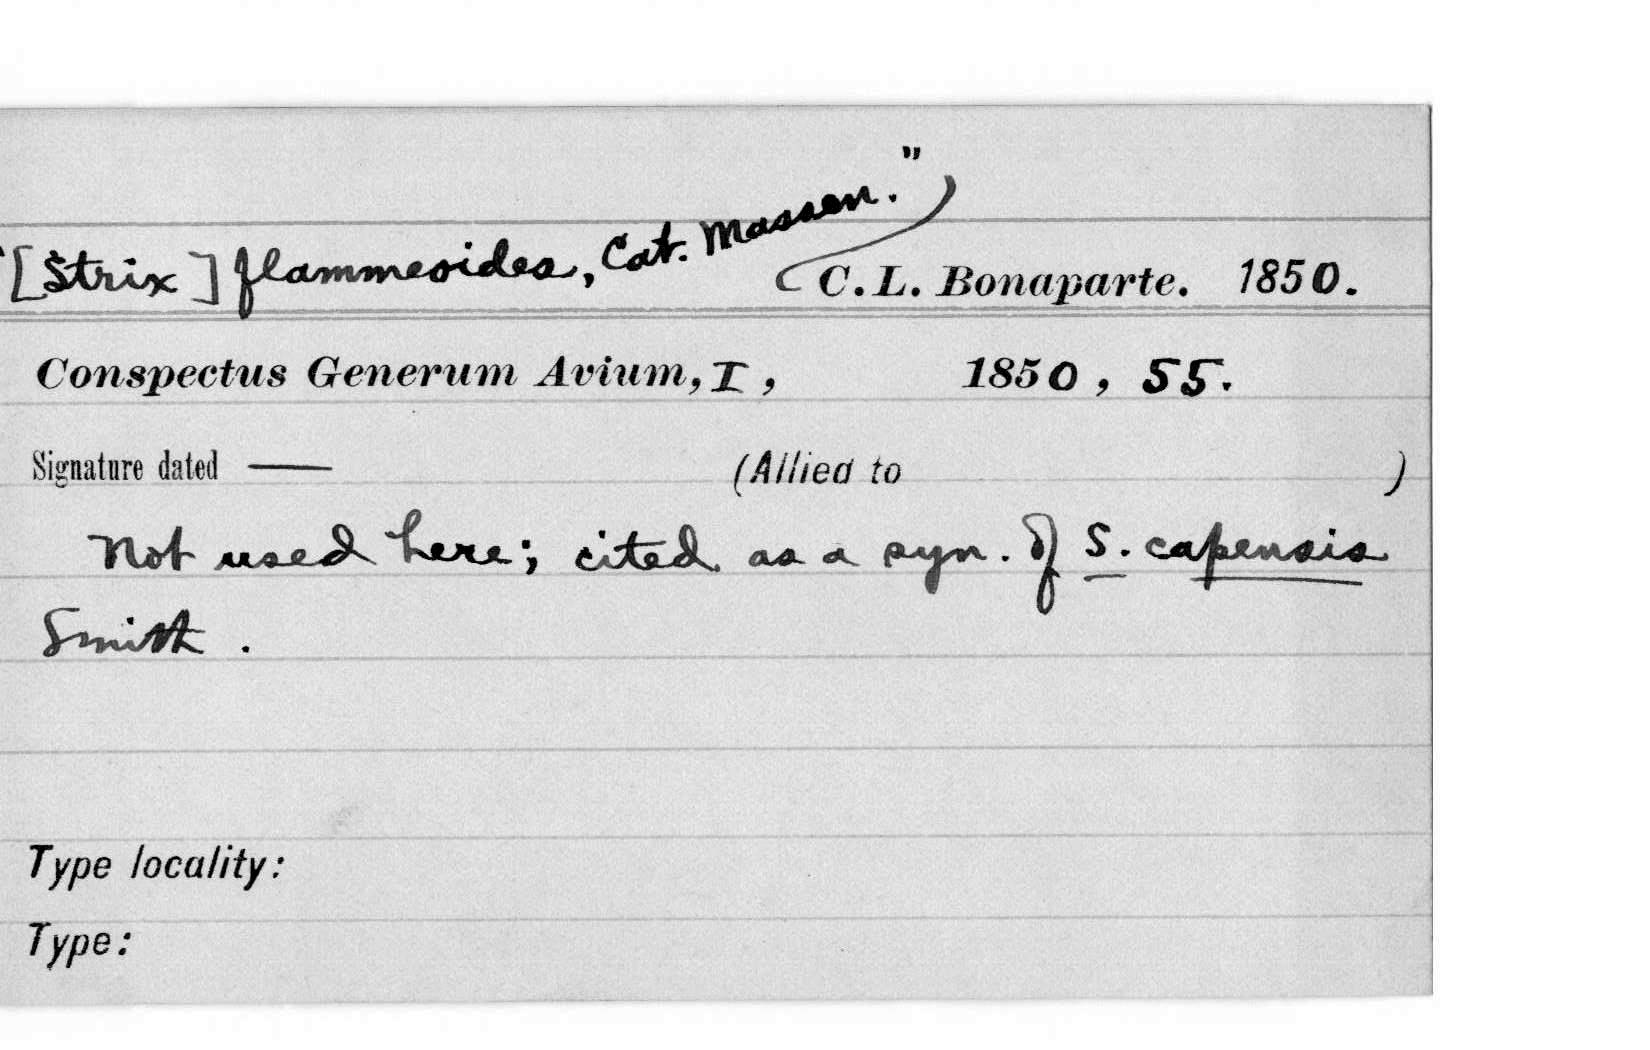 "[Strix] flammeoides, Cat. Massen."
C. L. Bonaparte. 1850.
Conspectus Generum Avium, I, 1850, 55.
Signature dated — (Allied to )
Not used here; cited as a syn. of S. capensis
Smith.
Type locality:
Type: